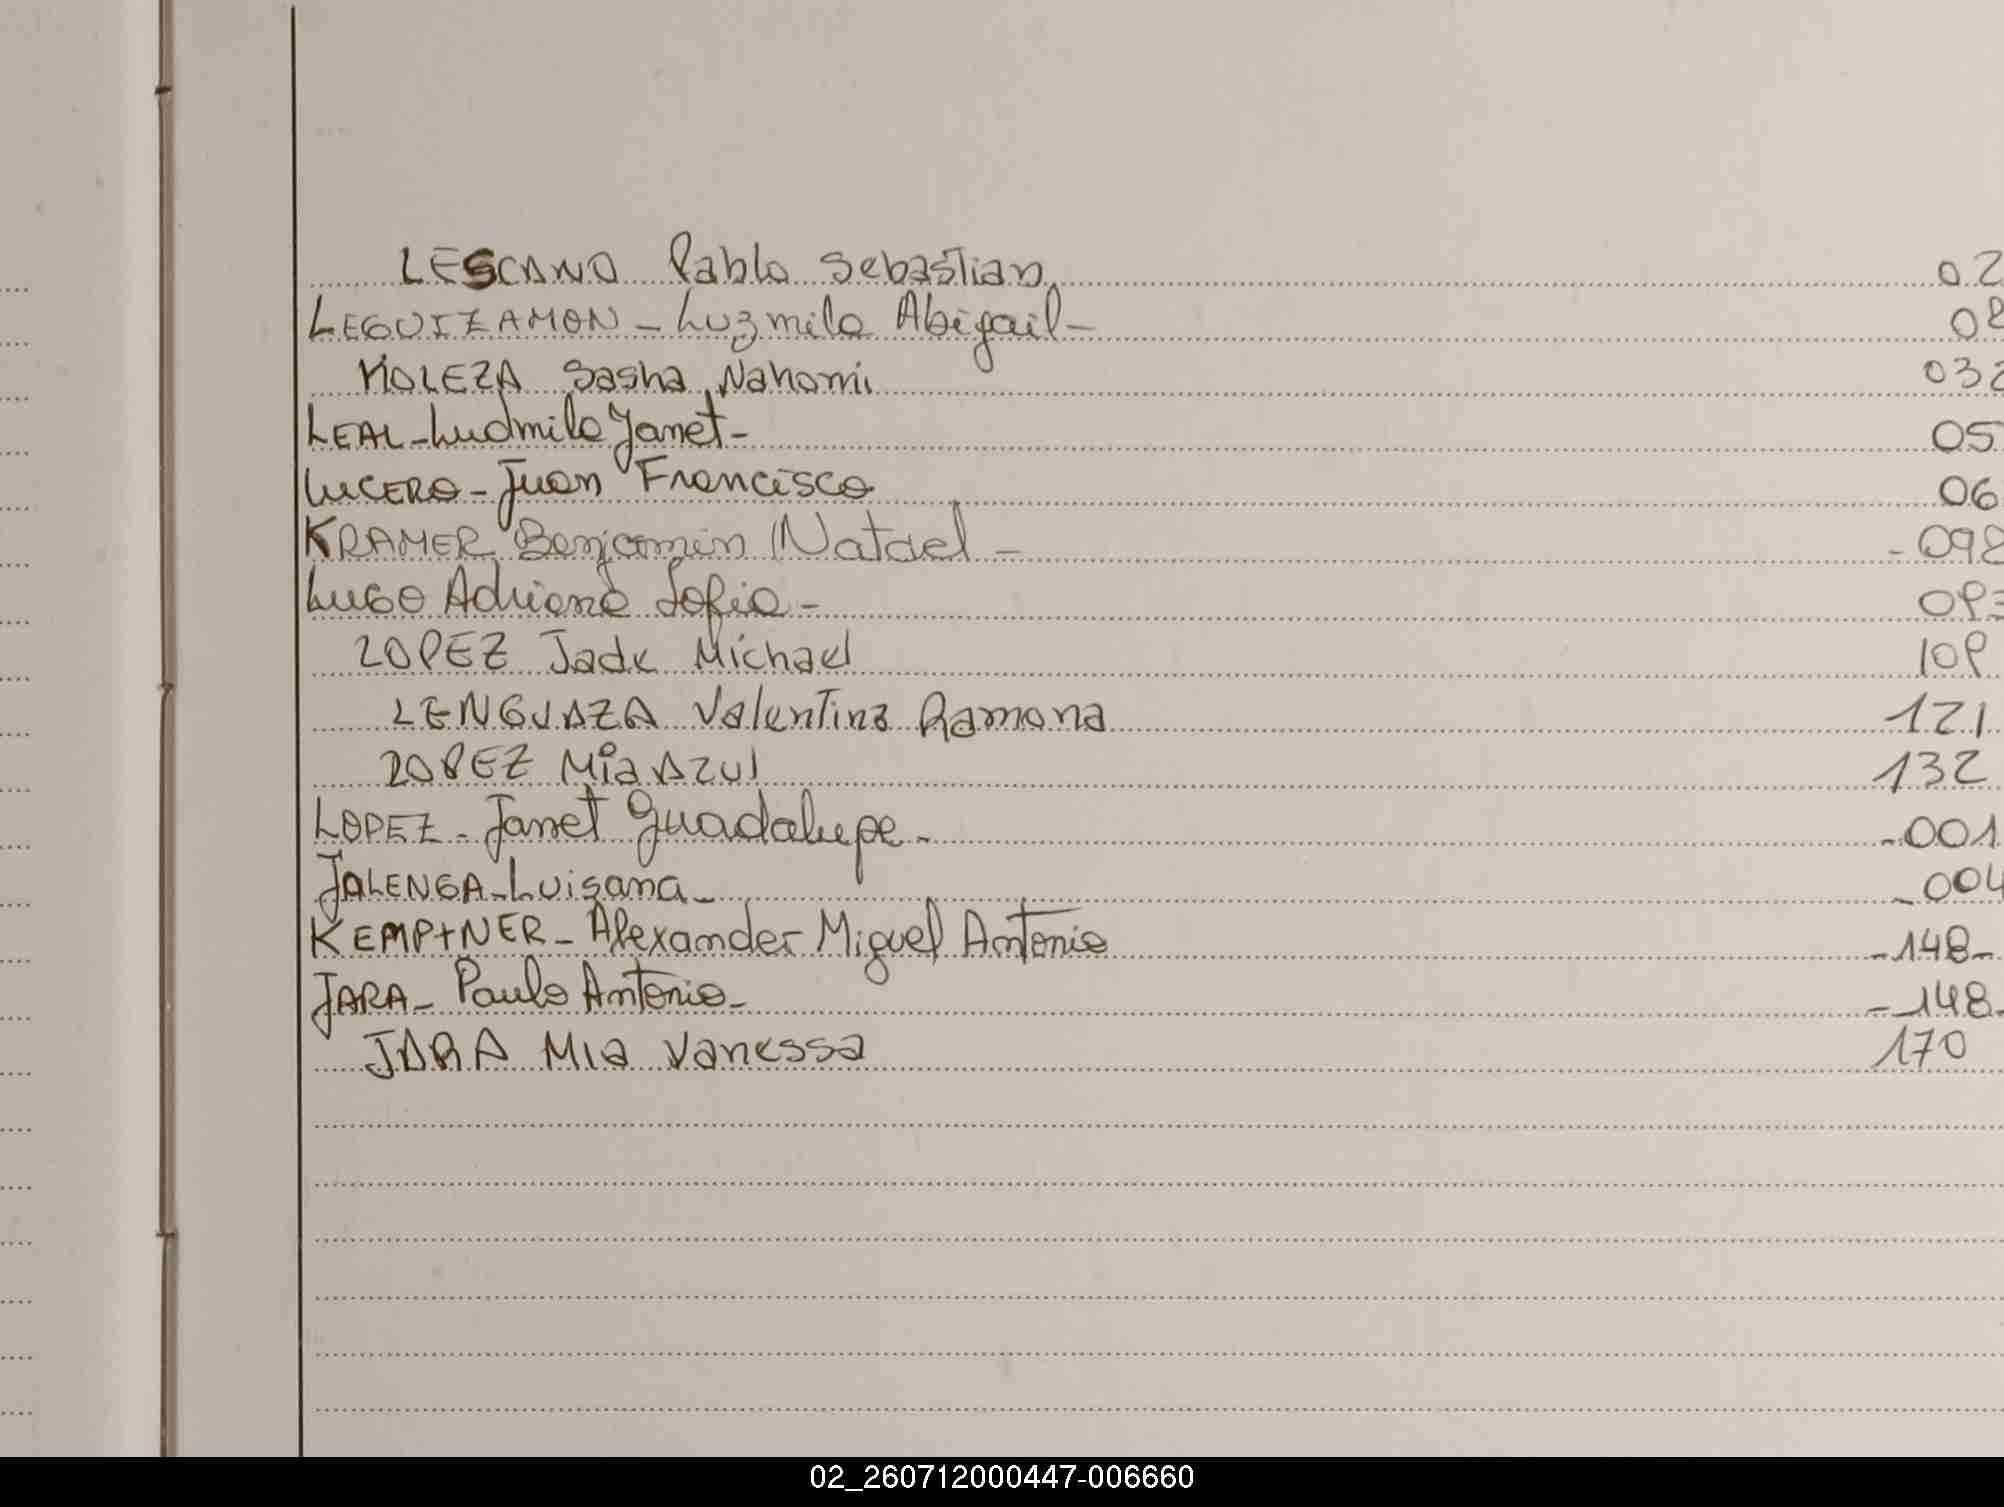 LESCANO Pablo Sebastian 02
LEGUIZAMON - Luzmila Abigail - 08
KOLEZA Sasha Nahomi 032
LEAL - Ludmila Janet - 05
LUCERO - Juan Francisco 06
KRAMER Benjamin Natael - - 098
LUGO Adriana Sofia - 093
LOPEZ Jade Michael 109
LENGUAZA Valentina Ramona 121
LOPEZ Mia Azul 132
LOPEZ - Janet Guadalupe - - 001
JALENGA - Luisana - - 004
KEMPTNER - Alexander Miguel Antonio - 148 -
JARA - Paulo Antonio - - 148 -
JARA Mia Vanessa 170
02_260712000447-006660